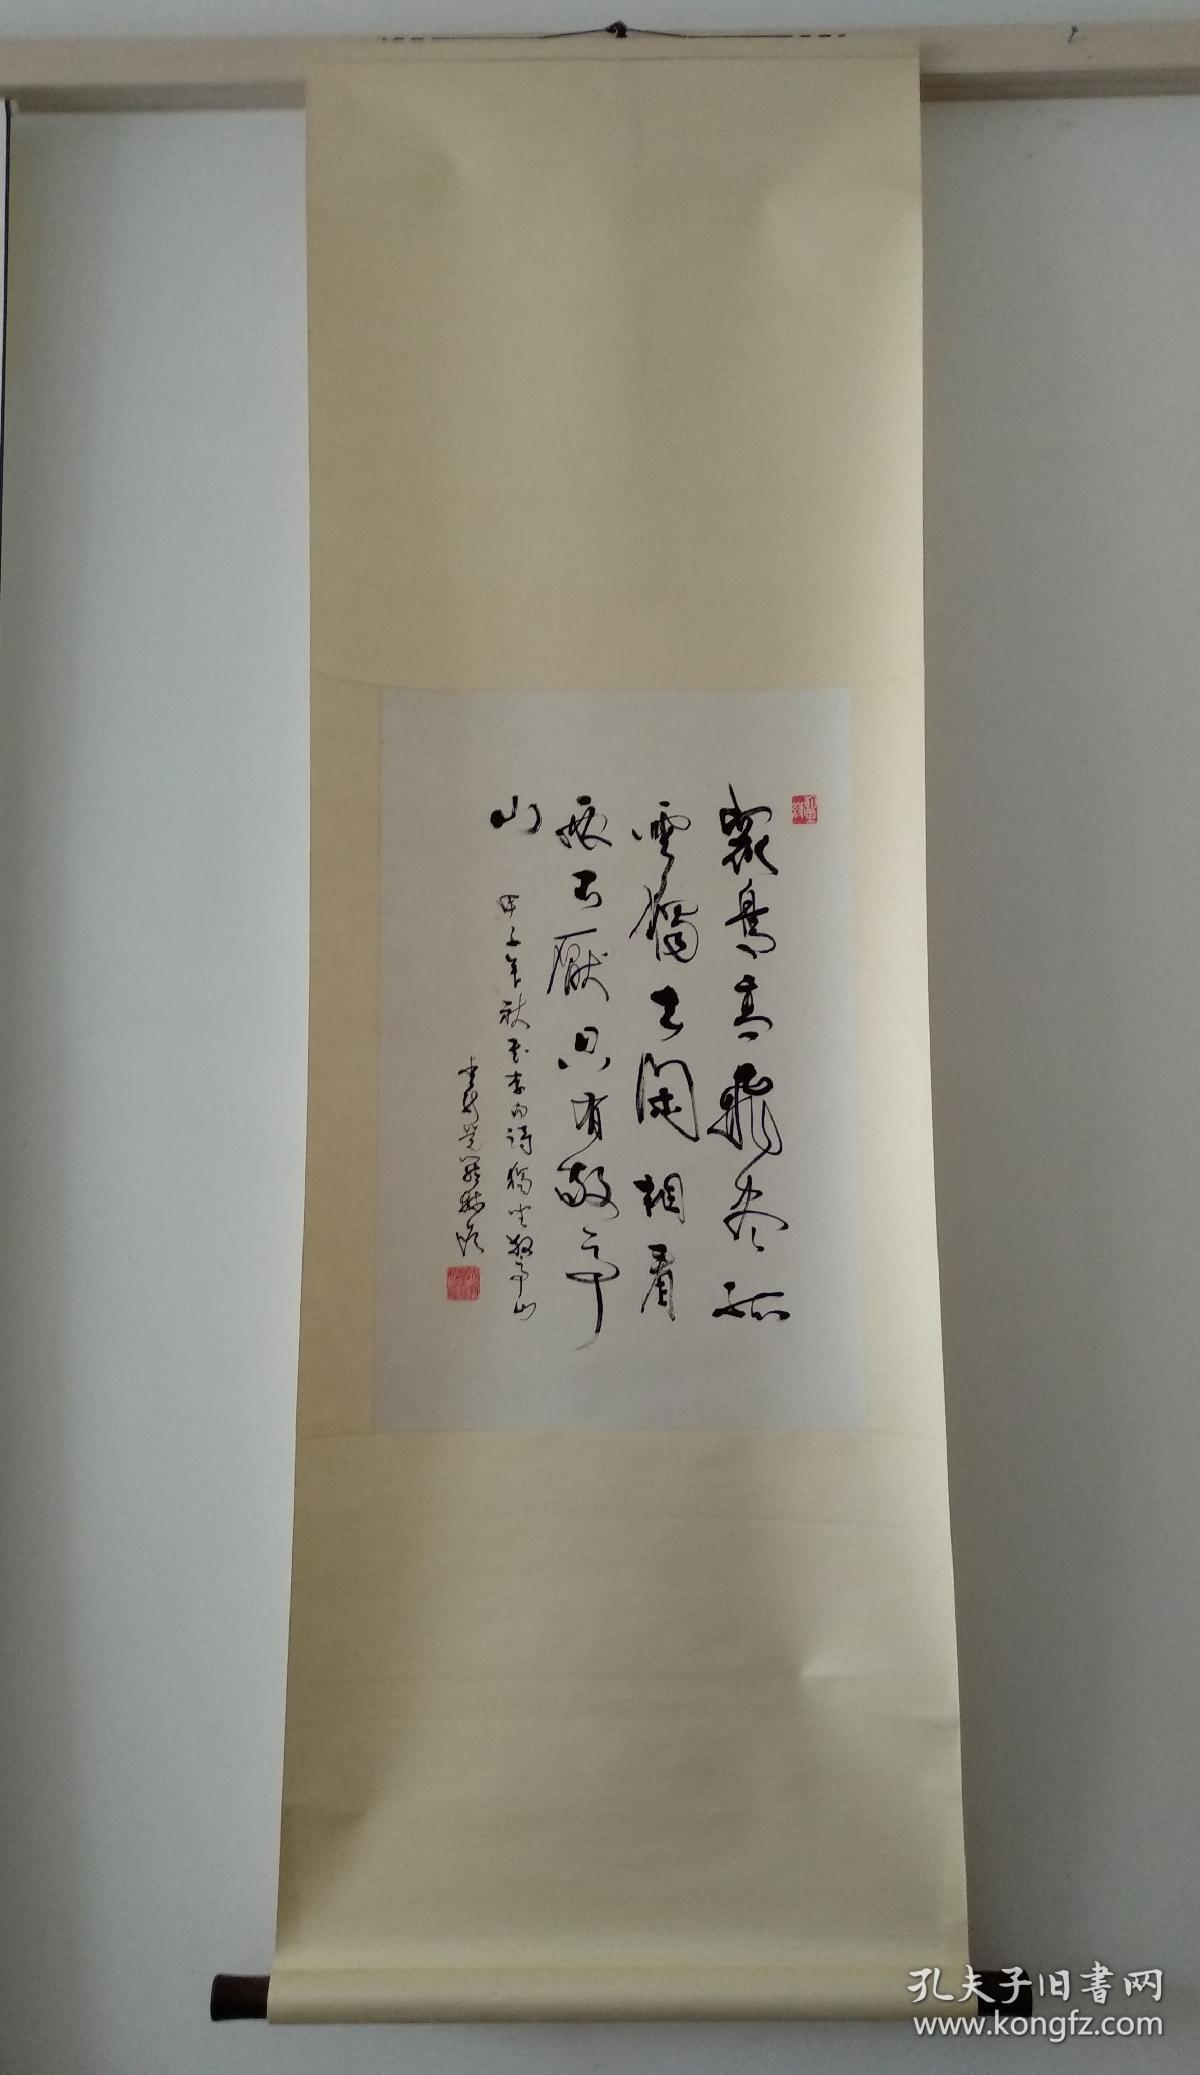 眾鳥高飛盡孤
雲獨去閑相看
兩不厭只有敬亭
山
甲子年秋書李白詩獨坐敬亭山
孔夫子旧書网
www.kongfz.com